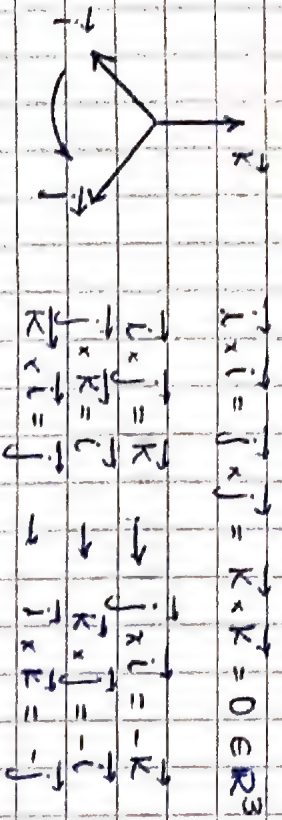 k⃗
i⃗
j⃗
i⃗ × i⃗ = j⃗ × j⃗ = k⃗ × k⃗ = 0 ∈ R³
i⃗ × j⃗ = k⃗ → j⃗ × i⃗ = -k⃗
j⃗ × k⃗ = i⃗ → k⃗ × j⃗ = -i⃗
k⃗ × i⃗ = j⃗ → i⃗ × k⃗ = -j⃗